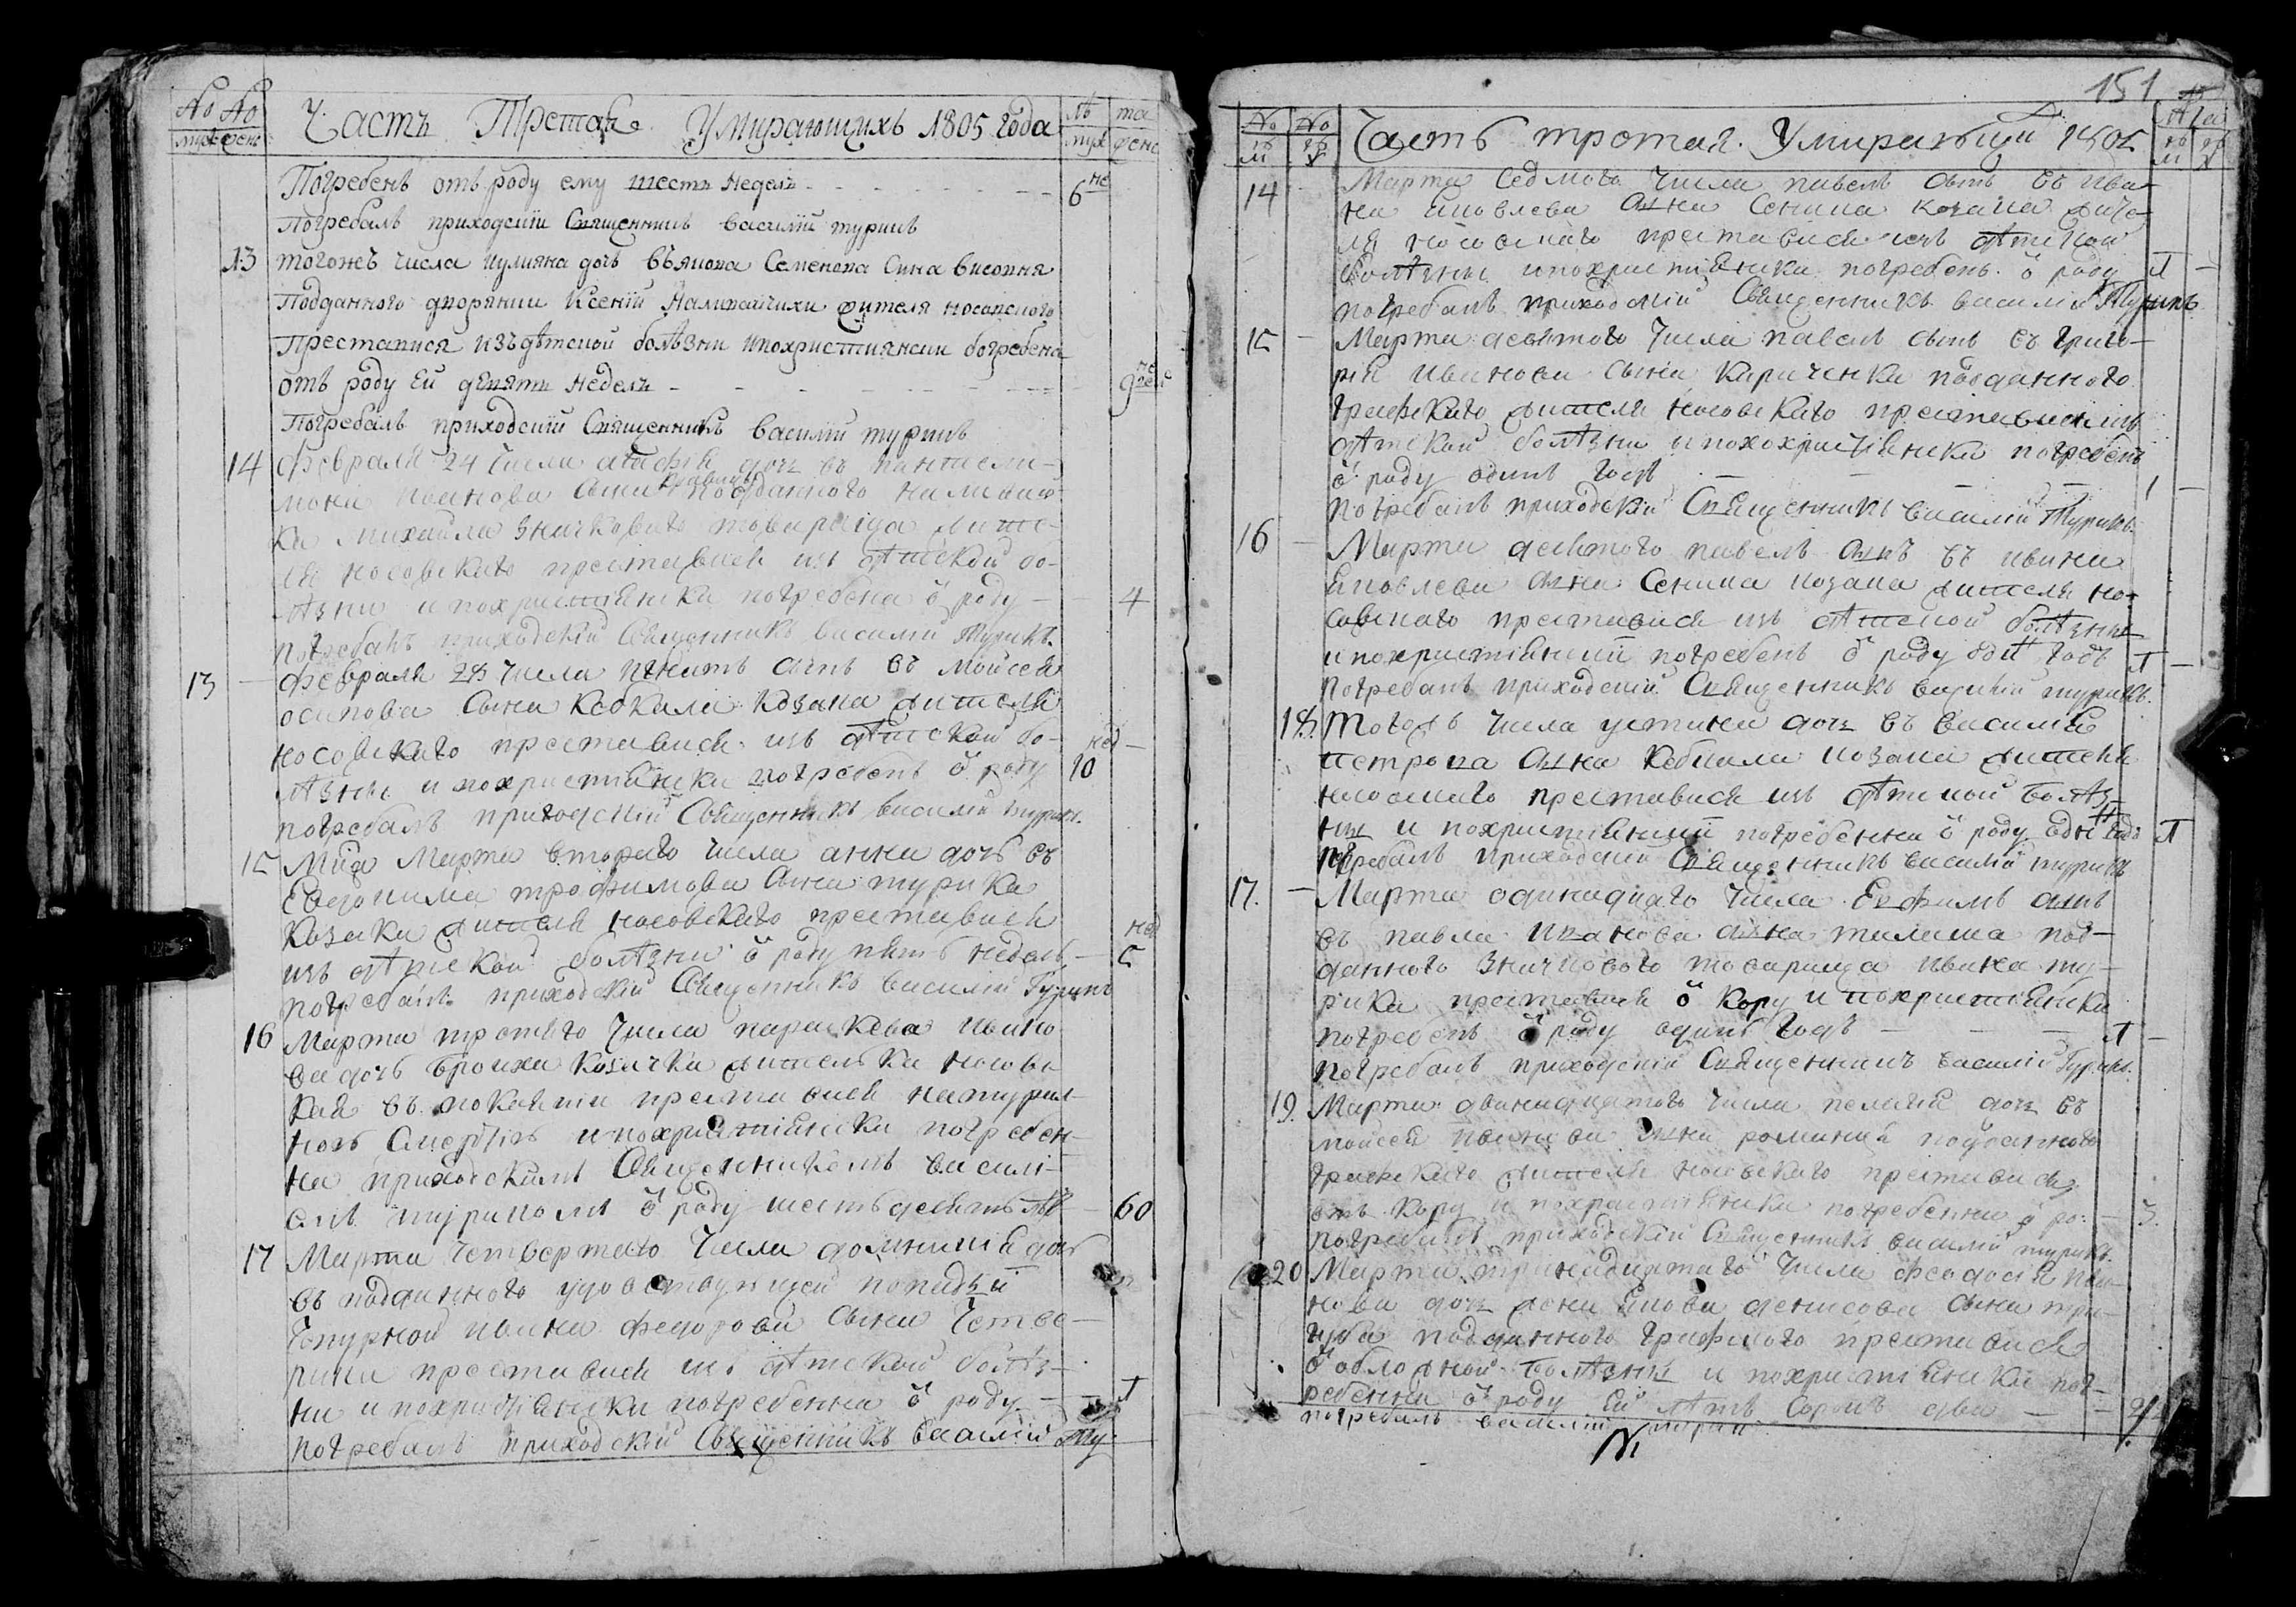 No No
муж жен
Часть Третая Умирающихъ 1805 года
лѣ та
муж жен
Погребенъ отъ роду ему шесть недель 6 не
Погребалъ приходскїи Священникъ василїй турикъ
13 тогожъ числа иулияна дочь въ якова Семенова Сина
Подданного дворянки Ксенїй жителя носовского
Преставися изъ дѣтской болѣзни ипохристиянски богребена
отъ роду Ей девять недель 9 нед
Погребалъ приходскїй Священникъ василїй турикъ
14 Февраля 24 числа агафия дочь въ пантели-
мона иванова Сина подданного
ка михайла значковаго товарища жите-
ля носовскаго преставися изъ дѣтской бо-
лѣзни и похристиянски погребена ѿ роду 4
погребалъ приходскїй Священникъ василїй Турикъ
13 Февраля 28 числа игнатъ сынъ въ мойсея
осипова Сына Кебкала козака жителя
носовскаго преставися изъ дѣтской бо- нед
лѣзни и похристиянски погребенъ ѿ роду 10
погребалъ приходскїй Священникъ василїй турикъ
15 М҃ца Марта втораго числа анна дочь въ
Евдокима трофимова Сына турика
Козака жителя носовскаго преставися нед
изъ дѣтской болѣзни ѿ роду пять недель 5
погребалъ приходскїй Священникъ василїй Турикъ
16 Марта третяго числа параскева ивано
ва дочь козачка жителька носовс
кая въ покаянїи преставися натурал
ною Смертїю и похристиянски погребен-
на приходскимъ Священникомъ василї-
емъ туриком ѿ роду шестьдесятъ лѣ 60
17 Марта четвертаго числа домникия дочь
въ подданного попадьи
ивана федорова сына Четве-
рика преставися изъ дѣтской болѣз-
ни и похристиянски погребенна ѿ роду 1
погребалъ приходскїй Священникъ василїй Ту-
151
No No
м ж
Часть третая. Умиратиї 1805
лѣта
м ж
14 Марта Седмого числа павелъ сынъ въ ива-
на яковлева Сына Сенина козака жите-
ля носовскаго преставися изъ дѣтской
болѣзни и похристиянски погребенъ ѿ роду 1
погребалъ приходскїй Священникъ василїй Турикъ
15 Марта десятого числа павелъ сынъ въ григо-
рїя иванова Сына Кириченка подданного
графскаго жителя носовскаго преставися изъ
дѣтской болѣзни и похохристиянски погребенъ
ѿ роду одинъ годъ 1
погребалъ приходскїй Священникъ василїй Турикъ
16 Марта десятого павелъ сынъ въ ивана
яковлева Сына Сенина козака жителя но-
совскаго преставися изъ дѣтской болѣзни
и похристиянски погребенъ ѿ роду оди годъ 1
погребалъ приходскїй Священникъ василїй турикъ
18. Тогожъ числа устина дочь въ василїя
петрова Сына Кебкала козака жителя
носовскаго преставися изъ дѣтской болѣз-
ни и похристиянски погребенна ѿ роду один годъ 1
погребалъ приходскїй Священникъ василїй турикъ
17. Марта одинадцаго числа Ефимъ сынъ
въ павла иванова сына под-
данного значкового товарища ивана ту-
рика преставися ѿ кору и похристиянски
погребенъ ѿ роду одинъ годъ 1
погребалъ приходскїй Священникъ василїй Турикъ
19. Марта двинадцатого числа пелагия дочь въ
мойсея иванова сына подданного
графскаго жителя носовскаго преставися
отъ кору и похристиянски погребенна ѿ ро: 3.
погребалъ приходскїй Священникъ василїй турикъ
20 Марта тринадцатаго числа феодосия ива-
нова дочь жена Якова денисова сына
подданного графского преставися
ѿ обложной болѣзни и похристиянски пог-
ребенна ѿ роду Ей лѣтъ Сорокъ два 42
погребалъ василїй турик